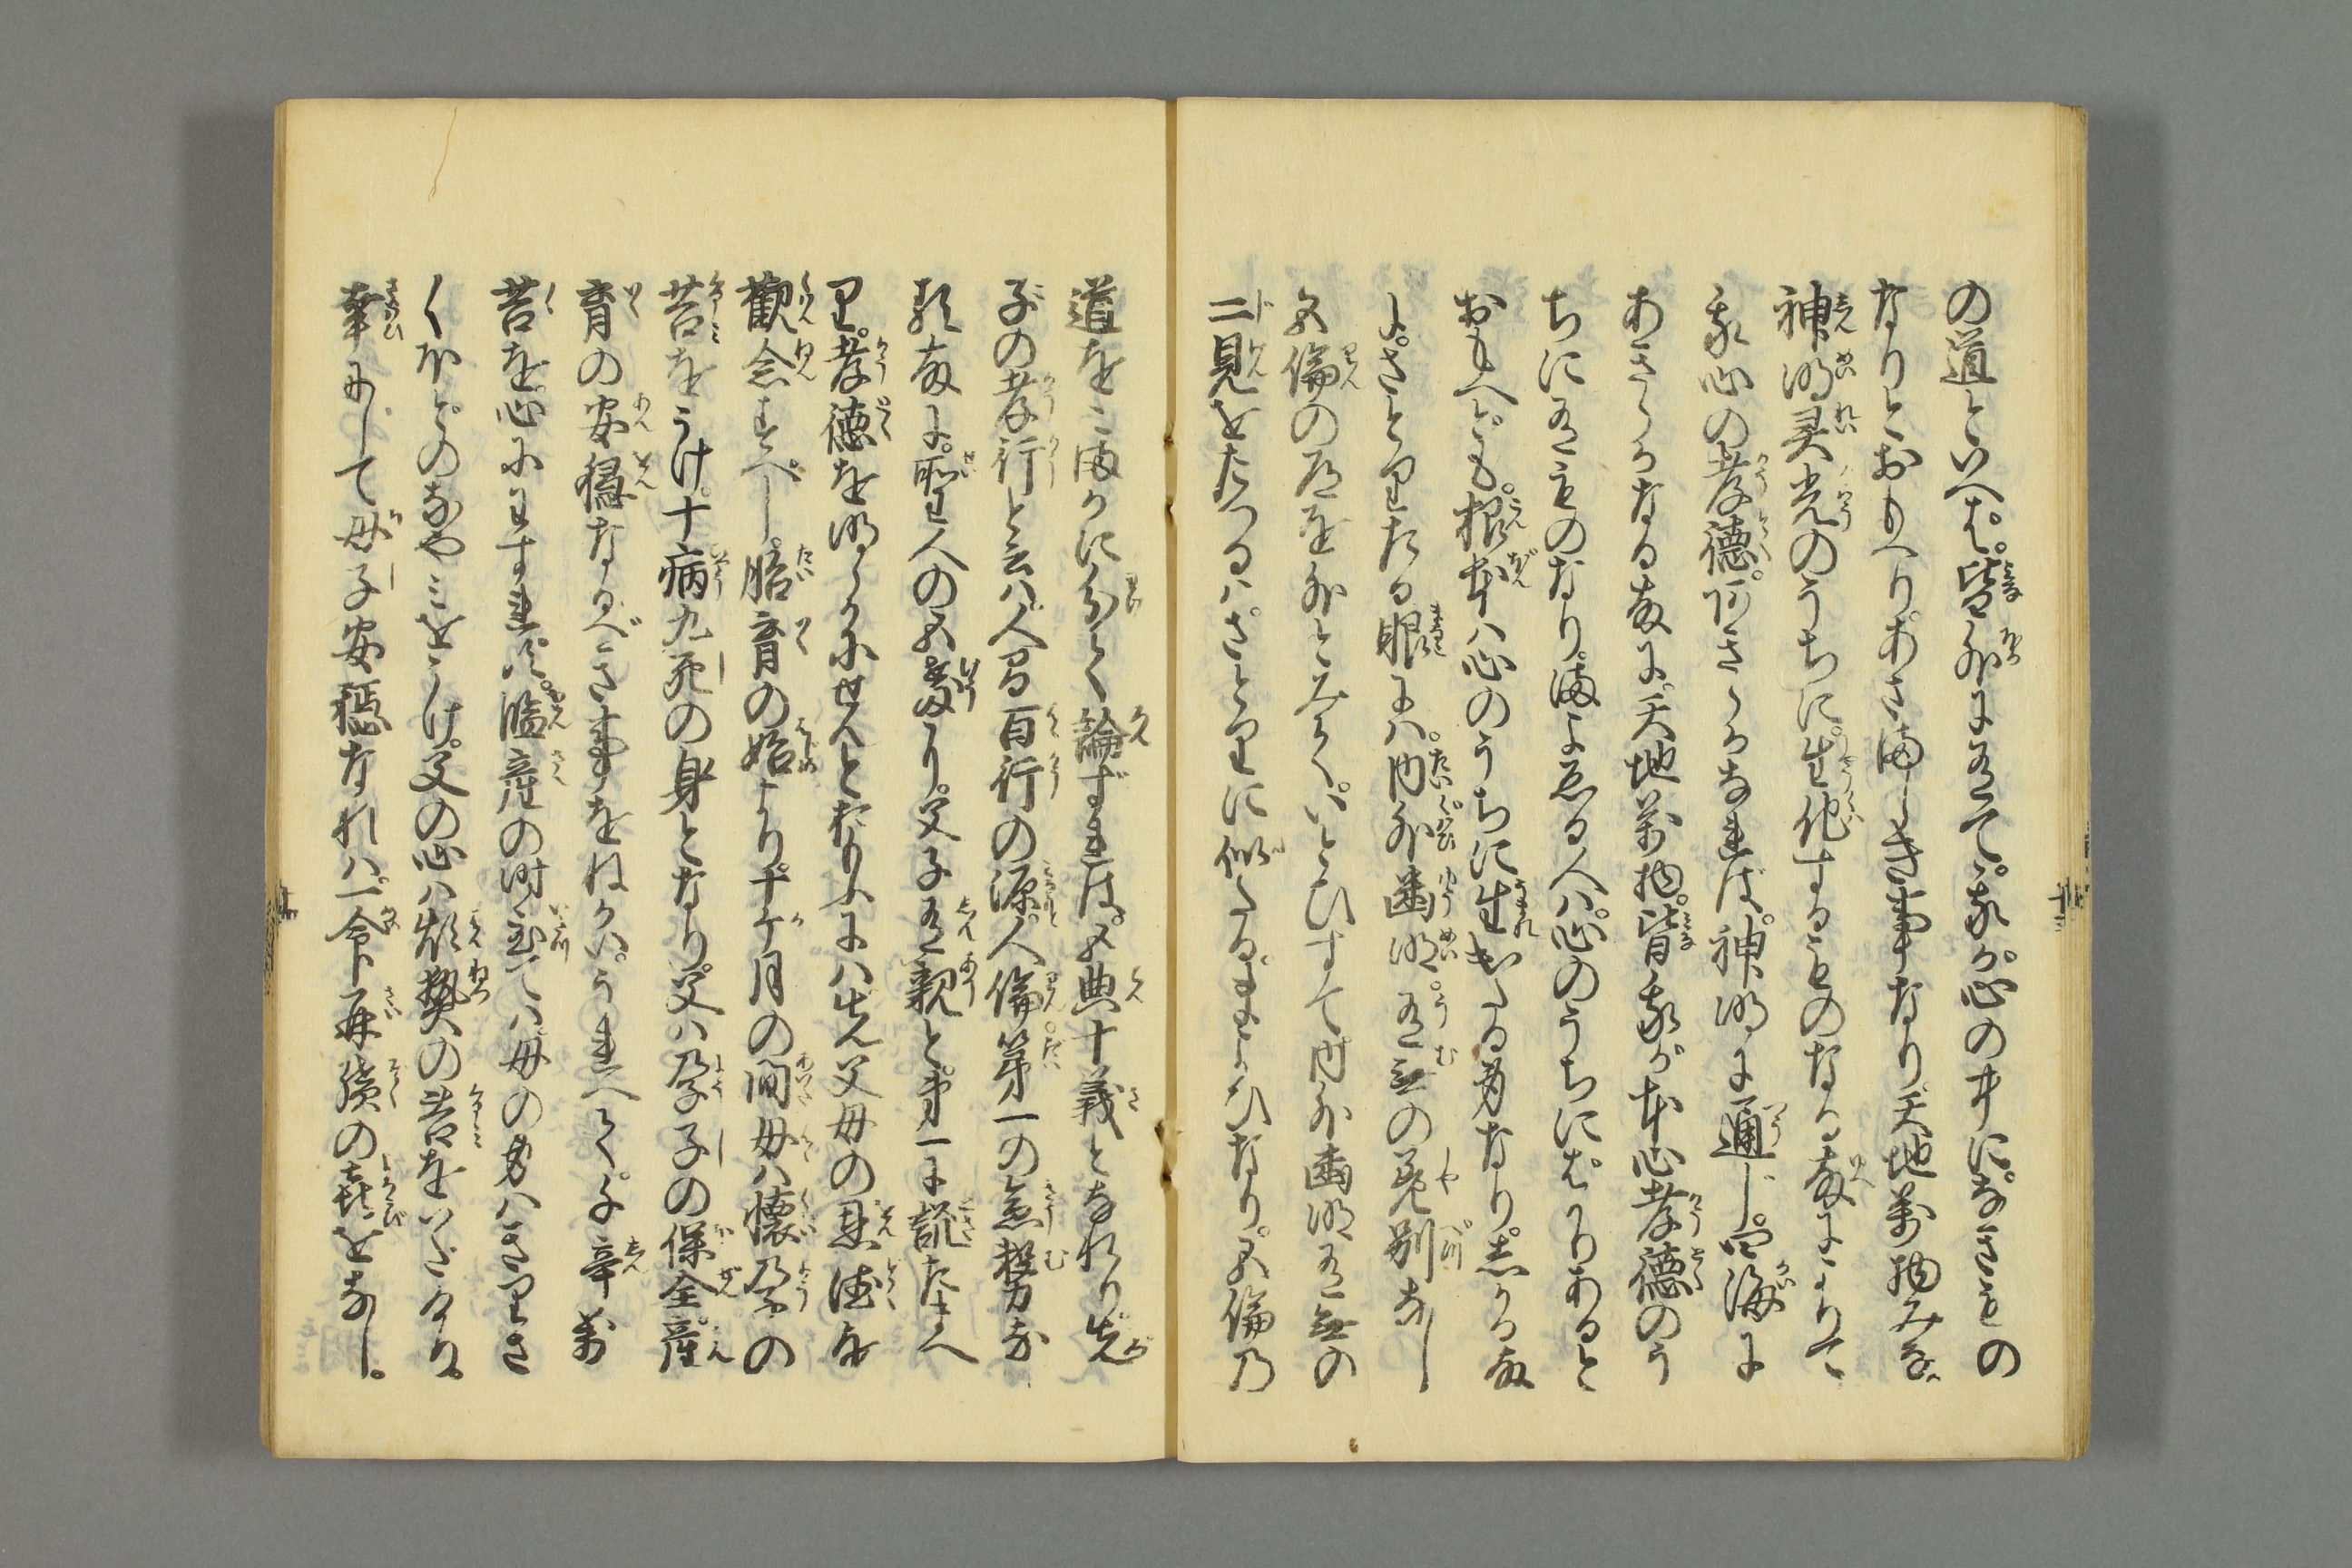 の道といへば。皆外にありて。我が心の中に。なきもの
なりとおもへり。あさましき事なり。天地萬物みな。
神明灵光のうちに。生化するものなる故によりて
我心の孝德。あきらかなれば。神明に通じ。四海に
あきらかなる故に。天地萬物。皆我が本心孝德のう
ちに有ものなり。まよゑる人は。心のうちにばかりあると
おもへども。根本は心のうちに生れきたる身なり。しかる故
に。さとりたる眼には。内外幽明。有無の差別なし
五倫の道を外とみて。いとひすて内外幽明有無の
二見をたつるは。さとりに似たるまよひなり。五倫の
道をこまかに分て論ずれば。五典十義となれり。先
子の孝行と云は。人間百行の源。人倫第一の急務な
る故に。聖人の五教にも。父子有親と。第一に説たまへ
り。孝德を明らかにせんとおもふには。先父母の恩德を
觀念すべし。胎育の始より。十ケ月の間。母は懷孕の
苦をうけ。十病九死の身となり。父は孕子の保全。産
育の安穩なるべき事をねがい。うれへて。千辛萬
苦を心にわすれず。臨産の時にいたりては。母の身はきりさ
くほどのなやみをうけ。父の心は煩熱の苦をいだけり。
幸にして母子安穩なれば。一命再續の喜をなし。